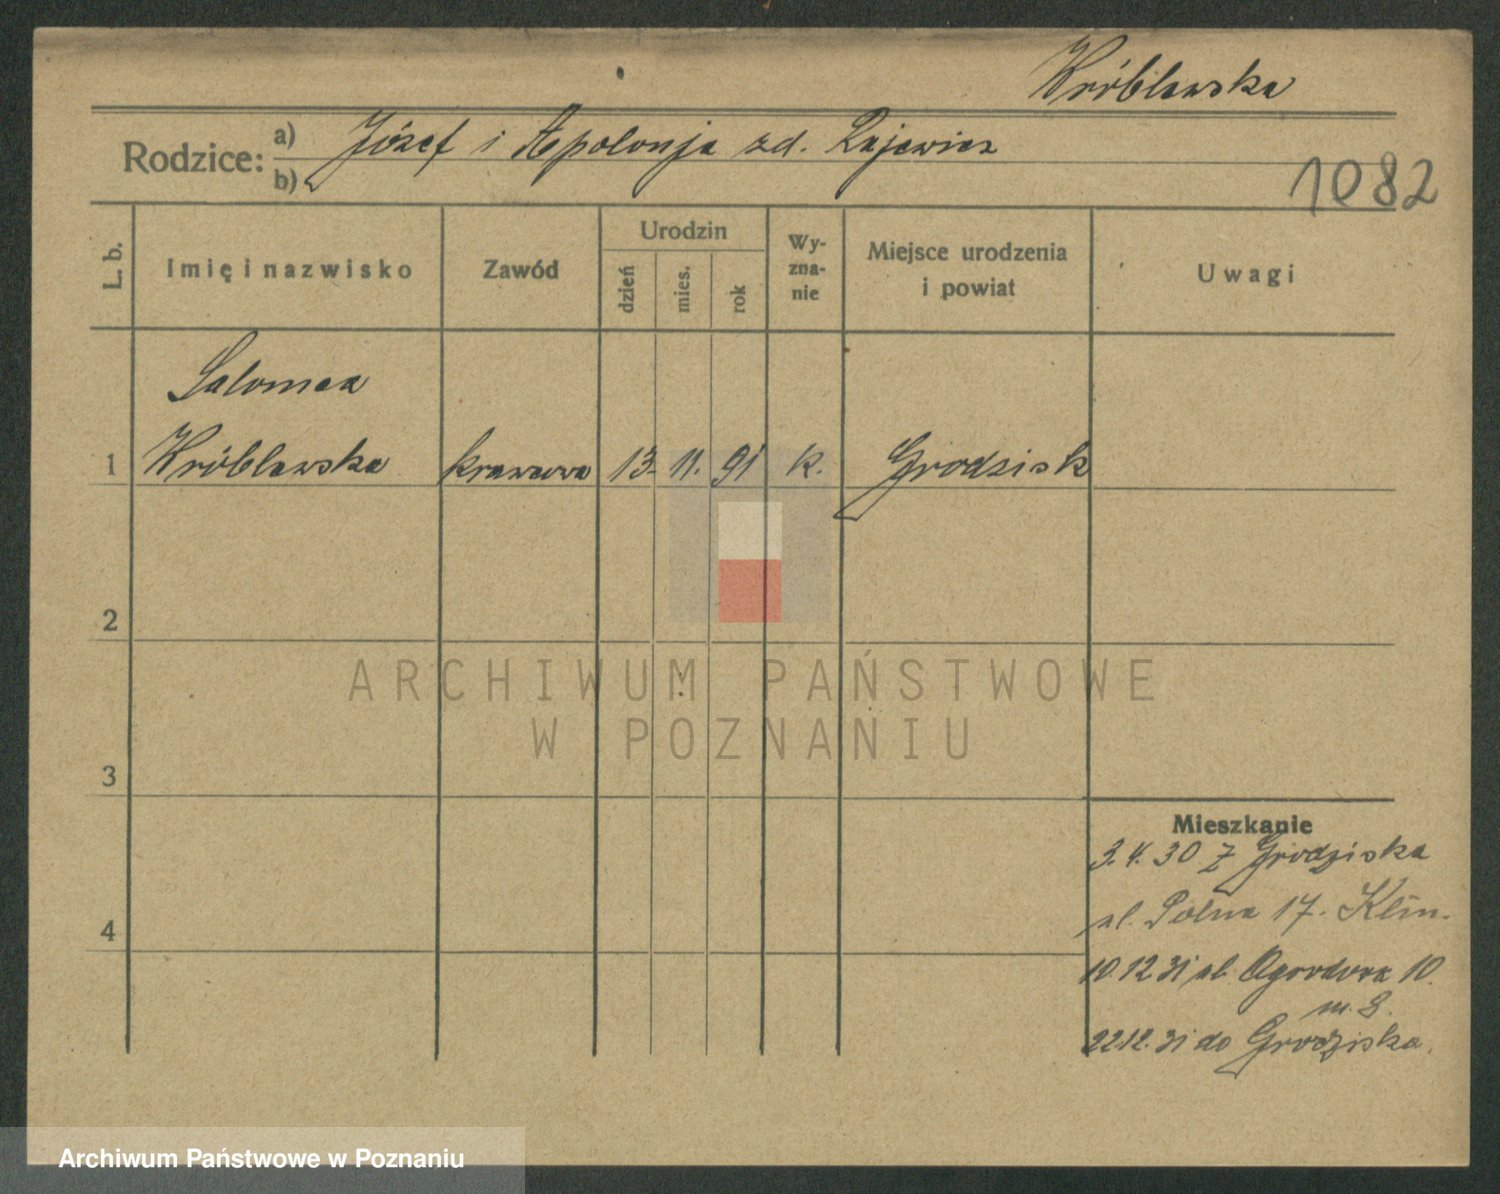 Wróblewska
Rodzice: a) Józef i Apolonja zd. Rajewicz
b)
1082
L. b. Imię i nazwisko Zawód Urodzin dzień mies. rok Wy-zna-nie Miejsce urodzenia i powiat Uwagi
Salomea
1 Wróblewska krawcowa 13. 11. 91 k. Grodzisk
2
3
4
Mieszkanie
3.4.30 z Grodziska
ul. Polna 17. Klin.
10.12.31 ul. Ogrodowa 10.
m. 8.
22.12.31 do Grodziska.
ARCHIWUM PAŃSTWOWE
W POZNANIU
Archiwum Państwowe w Poznaniu